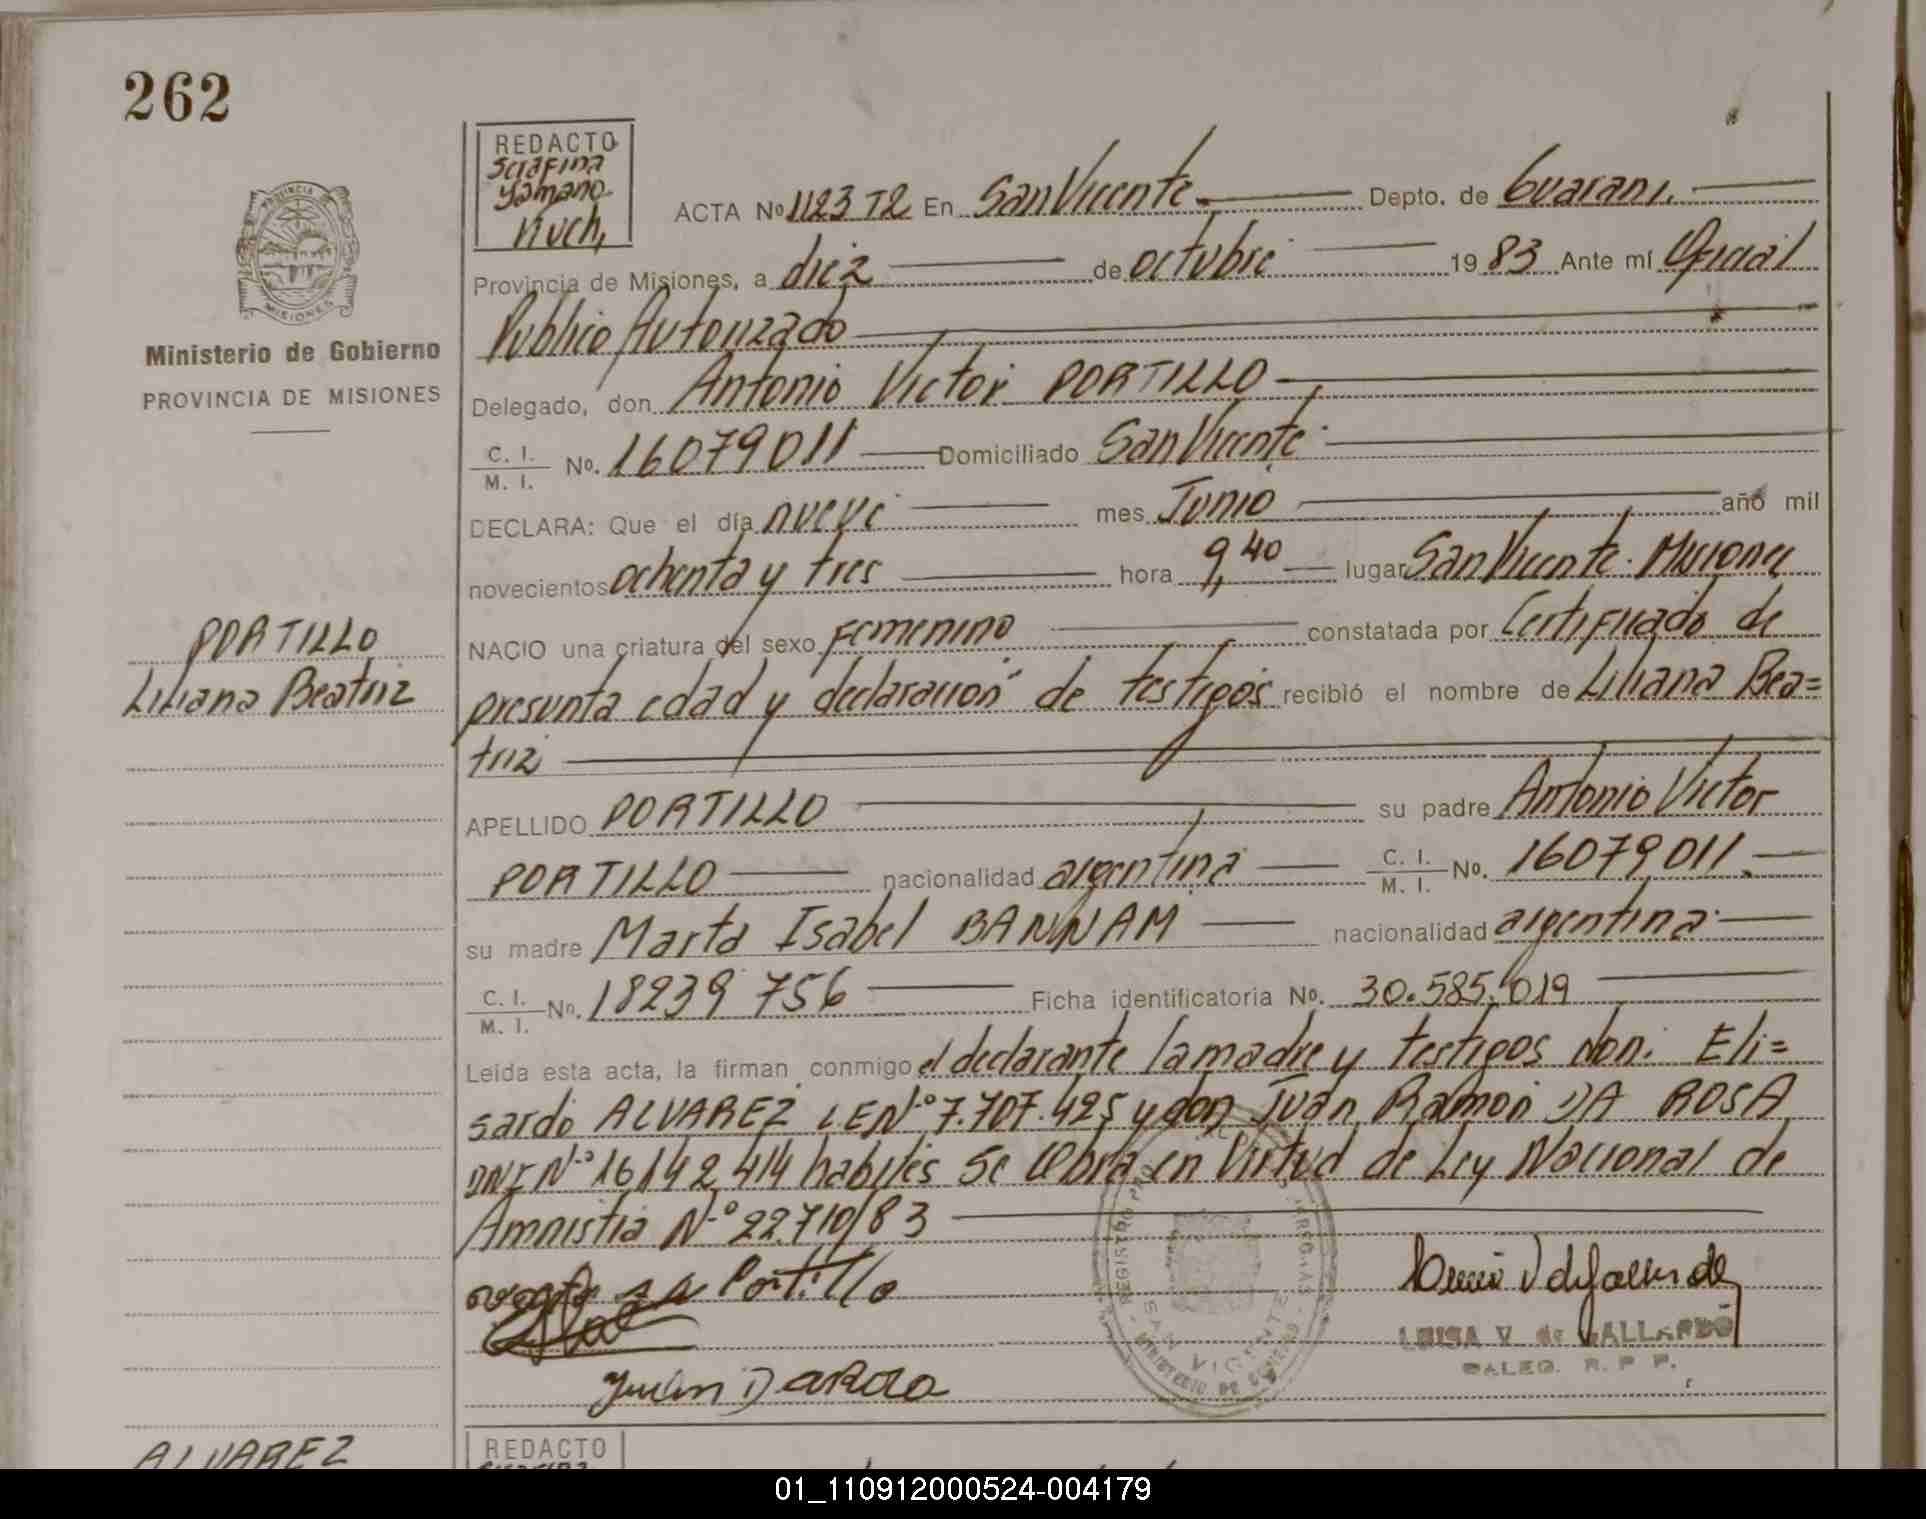 262
PROVINCIA
MISIONES
Ministerio de Gobierno
PROVINCIA DE MISIONES
REDACTO
Serafina
Yamano
Kuch,
ACTA No 1123 T2 En San Vicente Depto. de Guaraní.
Provincia de Misiones, a diez de octubre 1983 Ante mí Oficial
Público Autorizado
Delegado, don Antonio Victor PORTILLO
C. I. / M. I. No. 16079011 Domiciliado San Vicente
DECLARA: Que el día nueve mes Junio año mil
novecientos ochenta y tres hora 9,40 lugar San Vicente. Misiones
NACIO una criatura del sexo Femenino constatada por Certificado de
presunta edad y declaración de testigos recibió el nombre de Liliana Bea=
triz
PORTILLO
Liliana Beatriz
APELLIDO PORTILLO su padre Antonio Victor
PORTILLO nacionalidad argentina C. I. / M. I. No. 16079011.
su madre Marta Isabel BANNAM nacionalidad argentina
C. I. / M. I. No. 18239 756 Ficha identificatoria No. 30.585.019
Leída esta acta, la firman conmigo el declarante la madre y testigos don: Eli=
sardo ALVAREZ L.E.Nº 7.707.425 y don Juan Ramon DA ROSA
DNI Nº 16142 414 habiles Se Obra en Virtud de Ley Nacional de
Amnistia Nº 22.710/83
Portillo
LUISA V. de GALLARDO
DALEG. R. P. P.
SAN VICENTE
ALVAREZ
REDACTO
01_110912000524-004179